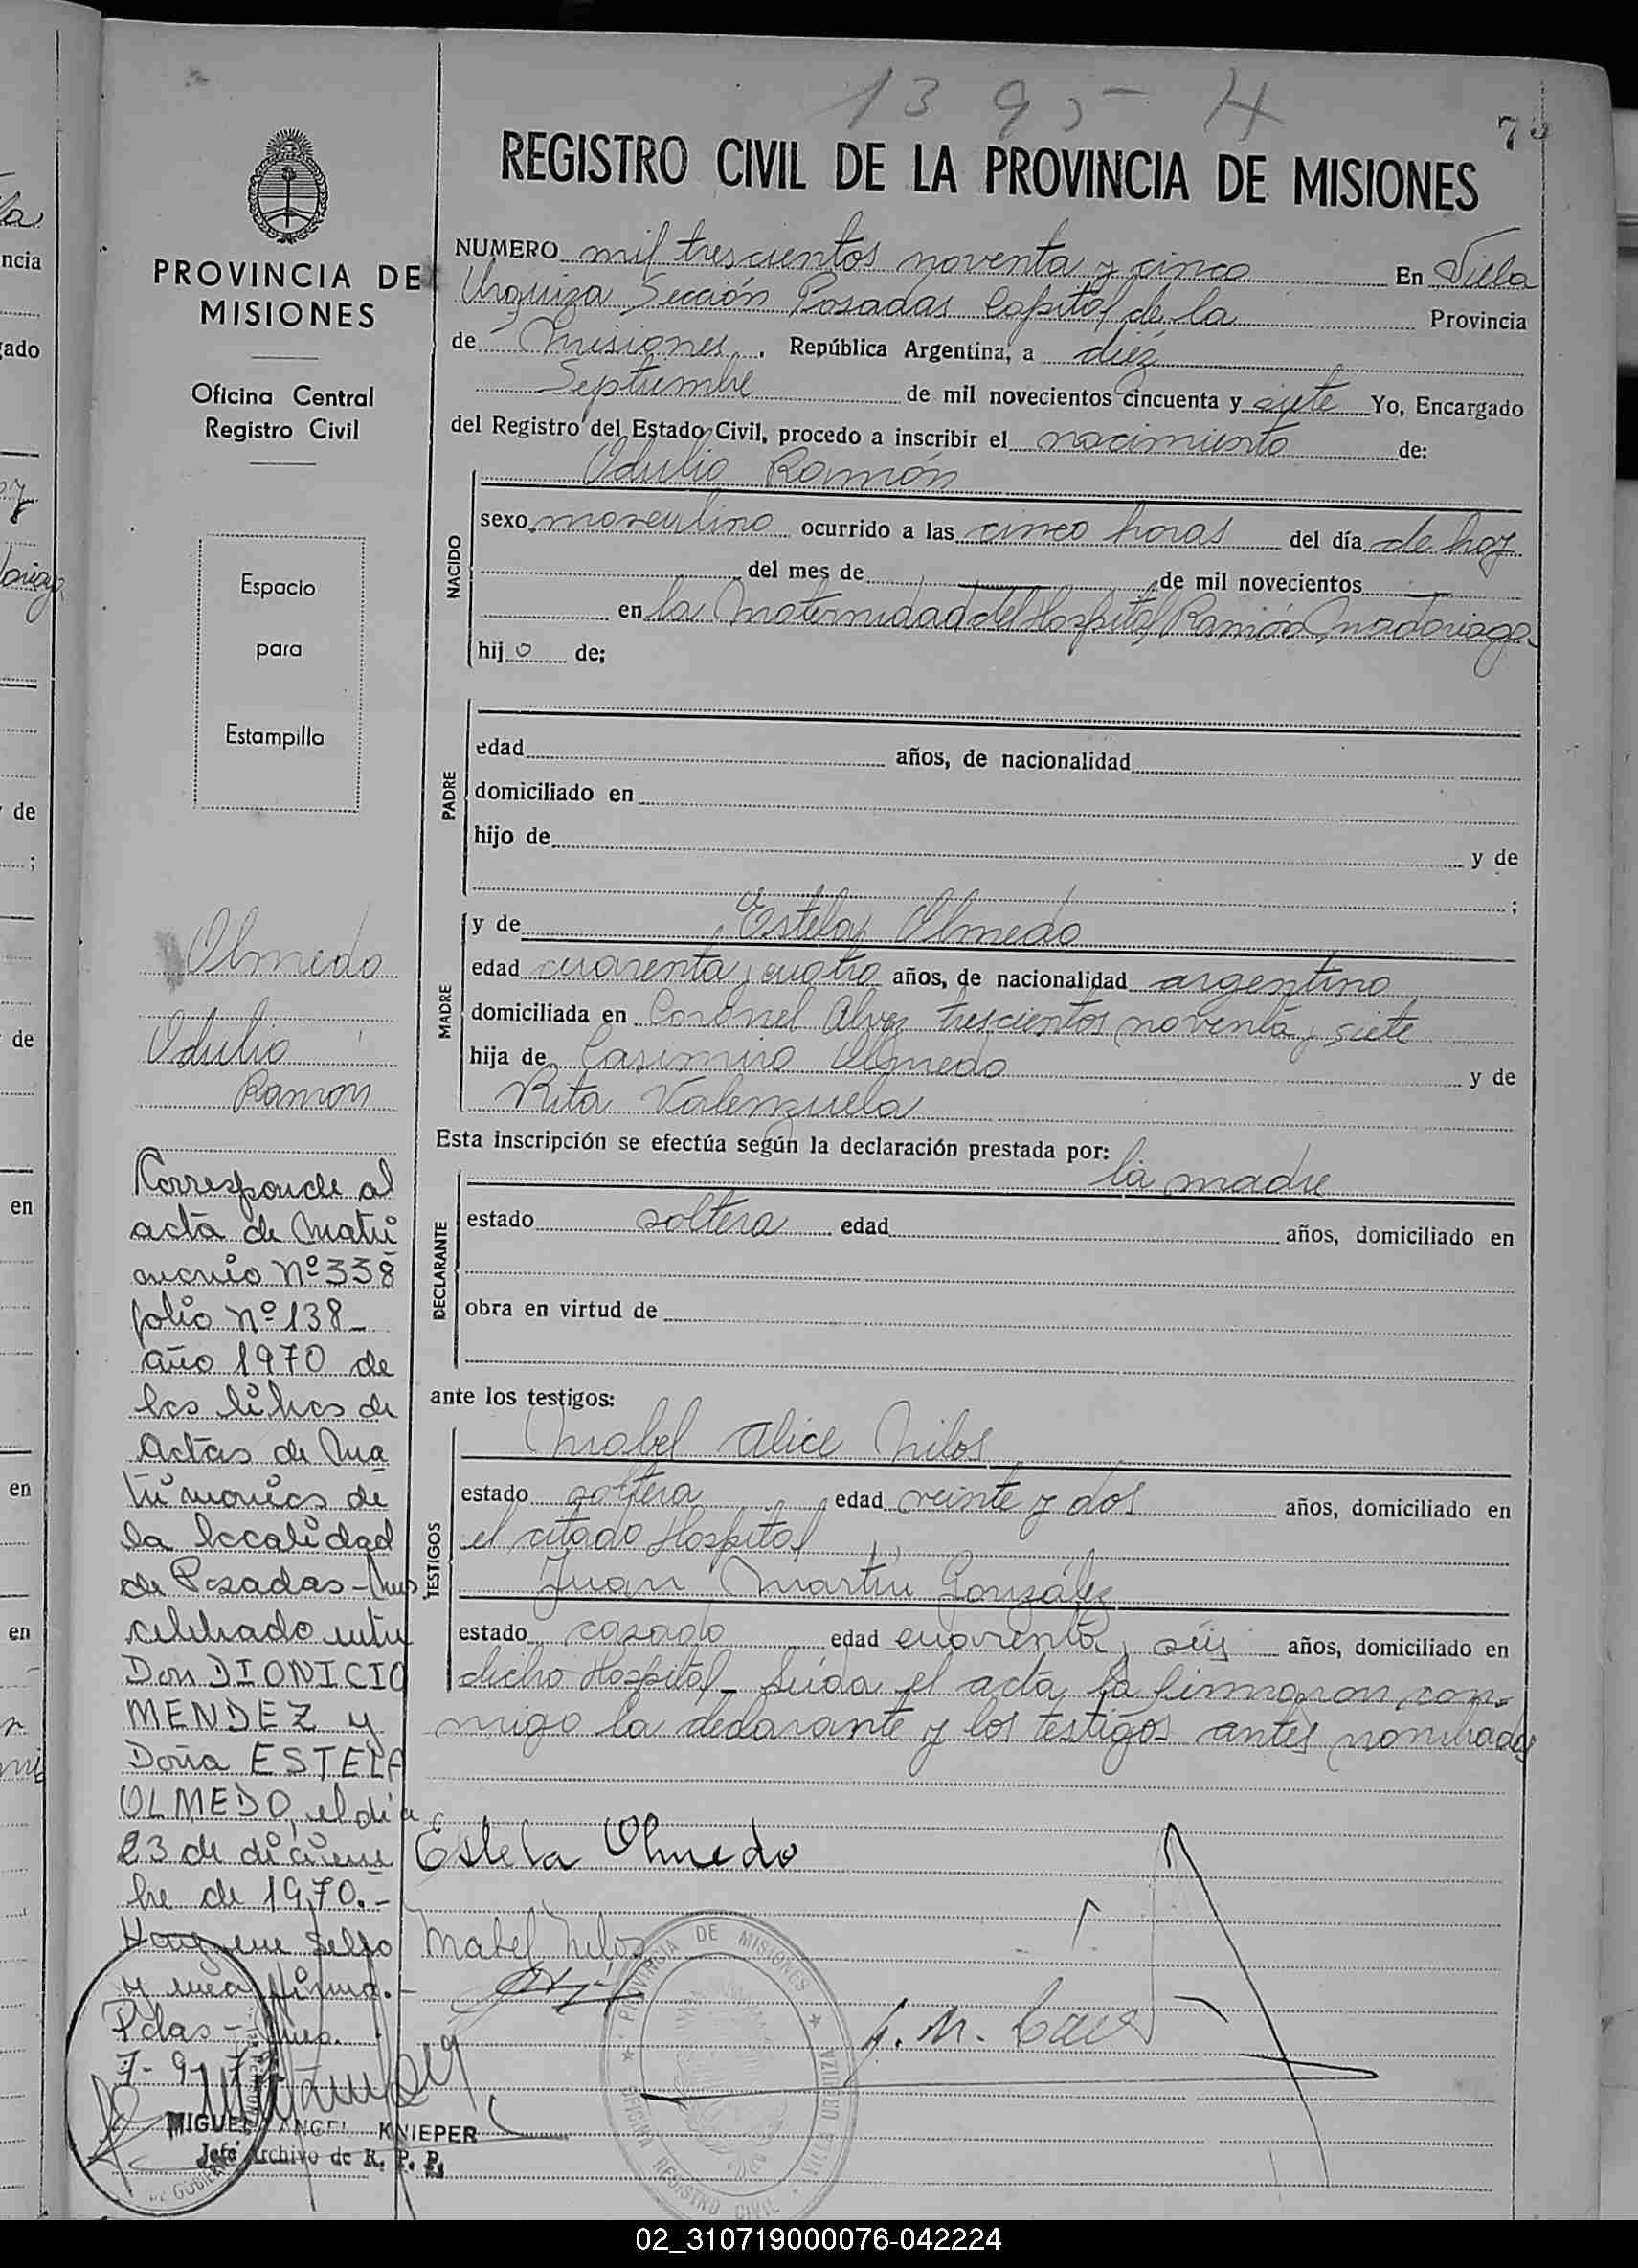 1395 H
REGISTRO CIVIL DE LA PROVINCIA DE MISIONES
PROVINCIA DE
MISIONES
Oficina Central
Registro Civil
Espacio
para
Estampilla
NUMERO mil trescientos noventa y cinco En Villa
Urquiza Sección Posadas Capital de la Provincia
de Misiones. República Argentina, a diez
Septiembre de mil novecientos cincuenta y siete Yo, Encargado
del Registro del Estado Civil, procedo a inscribir el nacimiento de:
Odulio Ramón
NACIDO
sexo masculino ocurrido a las cinco horas del día de hoy
del mes de de mil novecientos
en la Maternidad del Hospital Ramón Madariaga
hijo de;
PADRE
edad años, de nacionalidad
domiciliado en
hijo de y de
;
MADRE
y de Estela Olmedo
edad cuarenta y cuatro años, de nacionalidad argentina
domiciliada en Coronel Alvez trescientos noventa y siete
hija de Casimiro Olmedo y de
Rita Valenzuela
Esta inscripción se efectúa según la declaración prestada por:
la madre
DECLARANTE
estado soltera edad años, domiciliado en
obra en virtud de
ante los testigos:
TESTIGOS
Mabel Alice Nilos
estado soltera edad veinte y dos años, domiciliado en
el citado Hospital
Juan Martín González
estado casado edad cuarenta y seis años, domiciliado en
dicho Hospital - Leída el acta, la firmaron con-
migo la declarante y los testigos antes nombrados
Estela Olmedo
Mabel Nilos
Olmedo
Odulio
Ramon
Corresponde al
acta de Matri
monio Nº 338
folio Nº 138-
año 1970 de
los libros de
Actas de Ma
trimonios de
la localidad
de Posadas-Mns
celebrado entre
Don DIONICIO
MENDEZ y
Doña ESTELA
OLMEDO, el día
23 de diciem
bre de 1970.-
Hay un sello
y una firma.-
Pdas - Mnes.
MIGUEL ANGEL KNIEPER
Jefe Archivo de R. P. P.
PROVINCIA DE MISIONES
OFICINA REGISTRO CIVIL
VILLA URQUIZA
DE GOBIERNO
02_310719000076-042224